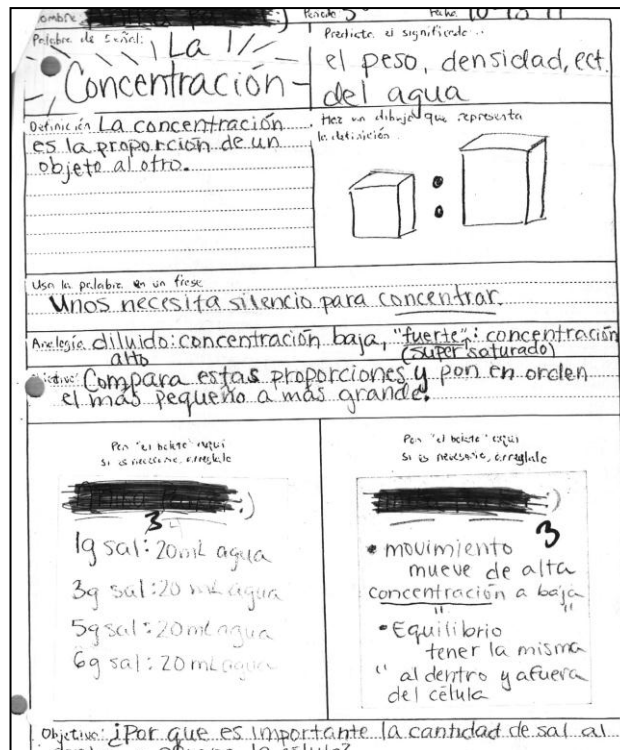 Nombre Periodo 5 Fecha 10-18-11
Palabra de Señal:
La
Concentración
Predicte el significado ..
el peso, densidad, ect.
del agua
Definición La concentración
es la proporción de un
objeto al otro.
Haz un dibujo que representa
la definición
Usa la palabra en un frase
Unos necesita silencio para concentrar.
Analogía diluido: concentración baja, "fuerte": concentración
alto (super saturado)
Compara estas proporciones y pon en orden
el más pequeño a más grande.
Pon "el bolete" aquí
Si es necesario, arreglalo
:)
3
1g sal: 20mL agua
3g sal: 20 mL agua
5g sal: 20mL agua
6g sal: 20 mL agua
Pon "el bolete" aquí
Si es necesario, arreglalo
:)
3
• movimiento
mueve de alta
concentración a baja
" "
• Equilibrio
tener la misma
" al dentro y afuera
del célula
Objetivo: ¿Por que es importante la cantidad de sal al
la célula?